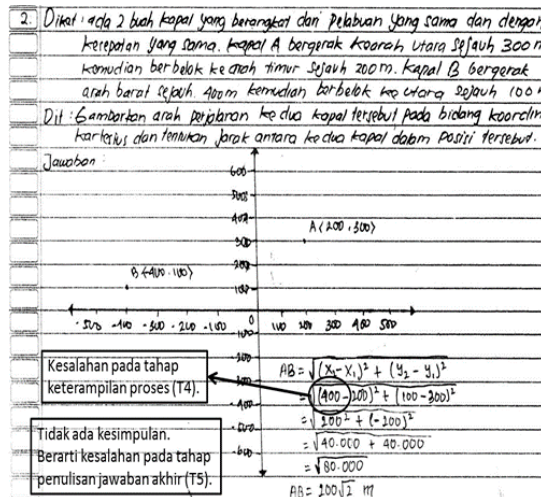 2. Diket : ada 2 buah kapal yang berangkat dari pelabuan yang sama dan dengan
kecepatan yang sama. kapal A bergerak kearah utara sejauh 300 m
kemudian berbelok ke arah timur sejauh 200m. Kapal B bergerak
arah barat sejauh 400m kemudian berbelok ke utara sejauh 100 m
Dit : Gambarkan arah perjalaran ke dua kapal tersebut pada bidang koordin
kartesius dan tentukan jarak antara ke dua kapal dalam posisi tersebut.
Jawaban
600
500
400
A (200, 300)
300
200
B (-400, 100)
100
-500 -400 -300 -200 -100 0 100 200 300 400 500
-100
-200
AB = √(X₂-X₁)² + (Y₂ - Y₁)²
Kesalahan pada tahap
keterampilan proses (T4).
= √(400-200)² + (100-300)²
-400
= √200² + (-200)²
-500
Tidak ada kesimpulan.
Berarti kesalahan pada tahap
penulisan jawaban akhir (T5).
= √40.000 + 40.000
-600
= √80.000
AB = 200√2 m